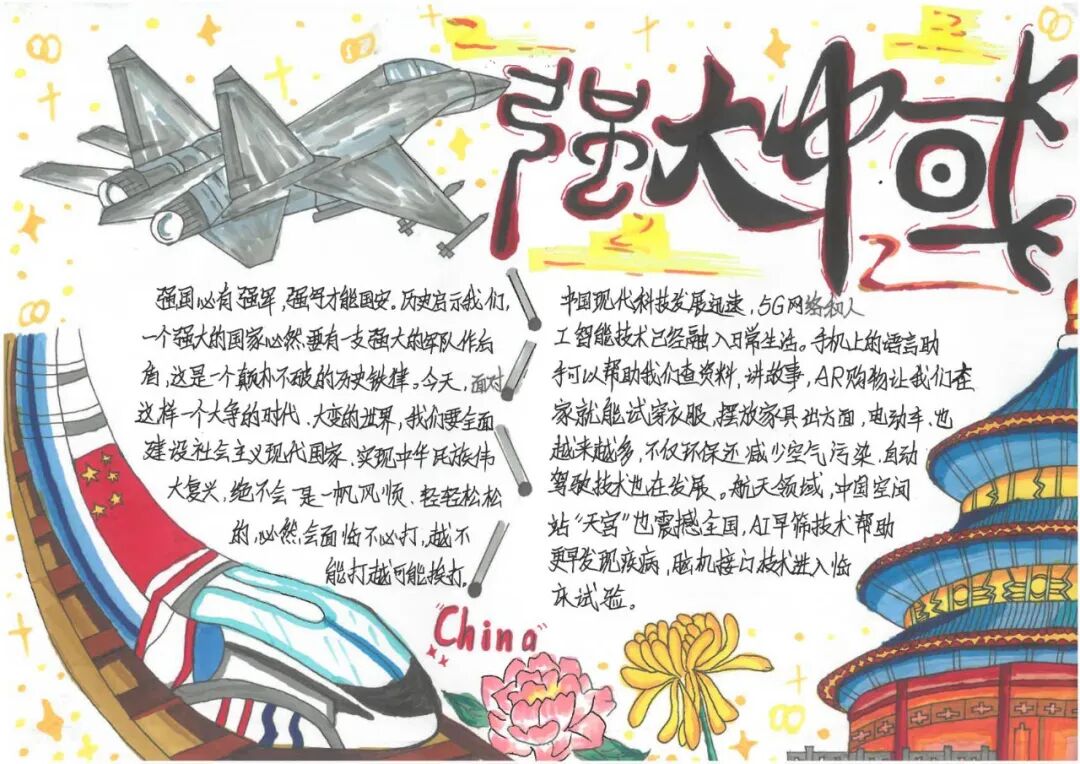 强大中国
强国必有强军，强军才能国安。历史启示我们，
一个强大的国家必然要有一支强大的军队作后
盾，这是一个颠扑不破的历史铁律。今天，面对
这样一个大争的时代、大变的世界，我们要全面
建设社会主义现代国家、实现中华民族伟
大复兴，绝不会是一帆风顺、轻轻松松
的，必然会面临不必打，越不
能打越可能挨打。
中国现代科技发展迅速，5G网络和人
工智能技术已经融入日常生活。手机上的语言助
手可以帮助我们查资料，讲故事，AR购物让我们在
家就能试穿衣服，摆放家具出方面，电动车也
越来越多，不仅环保还减少空气污染，自动
驾驶技术也在发展。航天领域，中国空间
站“天宫”也震撼全国，AI早筛技术帮助
更早发现疾病，脑机接口技术进入临
床试验。
"China"